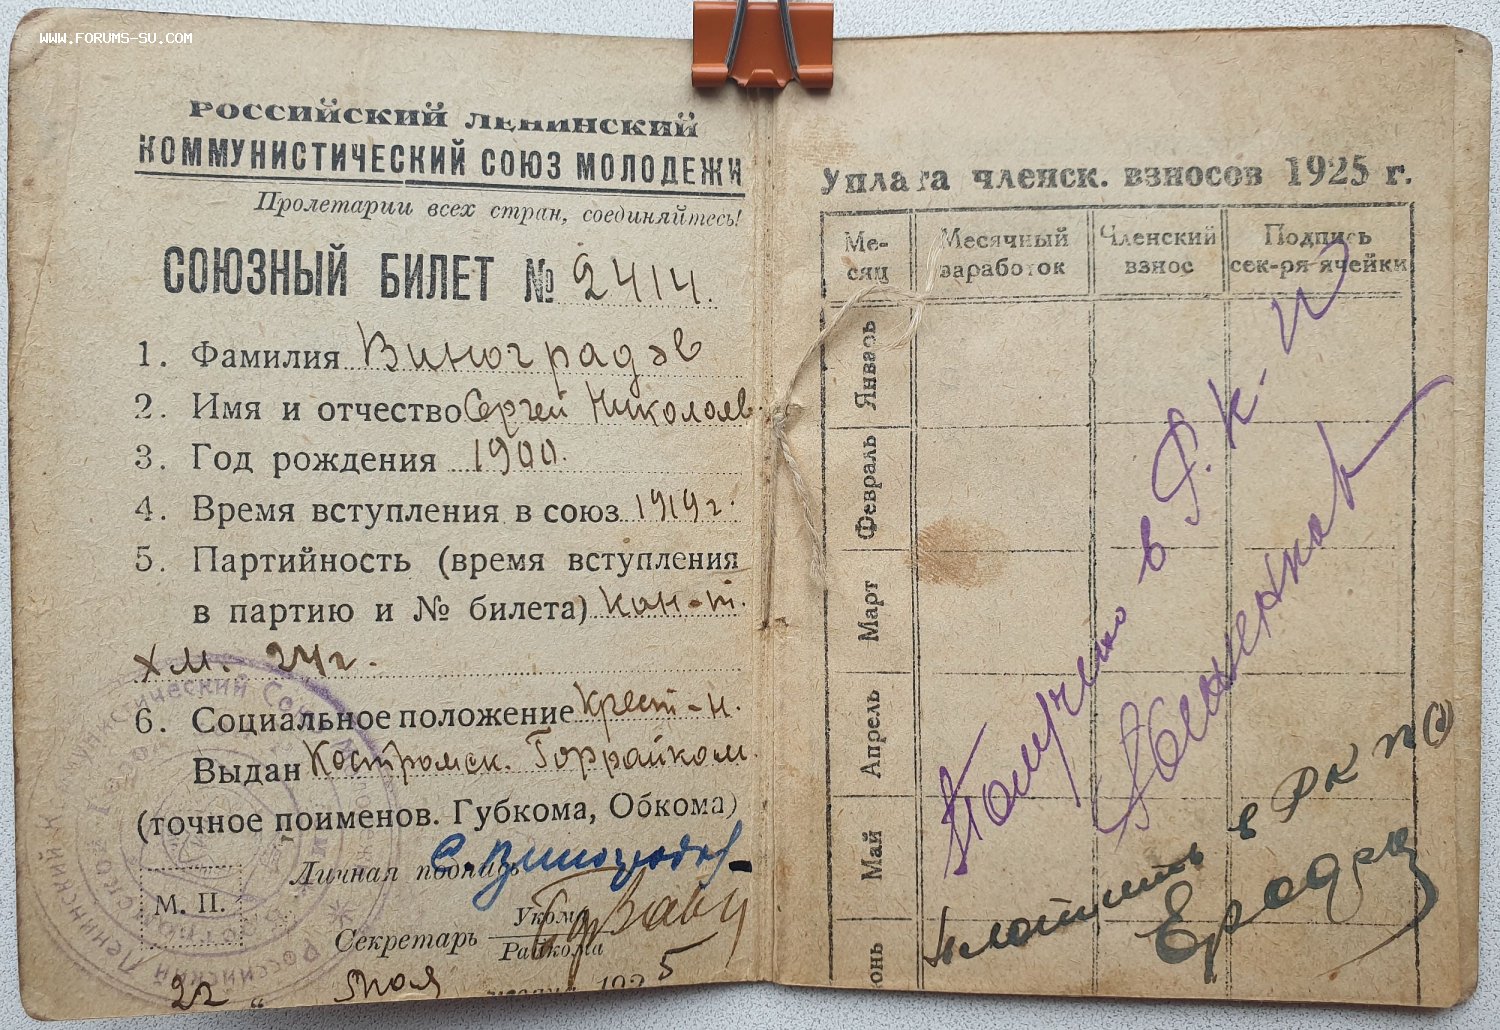 WWW.FORUMS-SU.COM
РОССИЙСКИЙ ЛЕНИНСКИЙ
КОММУНИСТИЧЕСКИЙ СОЮЗ МОЛОДЕЖИ
Пролетарии всех стран, соединяйтесь!
СОЮЗНЫЙ БИЛЕТ № 2414.
1. Фамилия Виноградов
2. Имя и отчество Сергей Николаев.
3. Год рождения 1900.
4. Время вступления в союз 1919 г.
5. Партийность (время вступления
в партию и № билета) кан-т.
24 г.
6. Социальное положение Крест-н.
Выдан Костромск. Горрайком.
(точное поименов. Губкома, Обкома)
Личная подпись С. Виноградов
М. П.
Секретарь Укома
Райкома
22 " 1925
Уплата членск. взносов 1925 г.
Ме-
сяц
Месячный
заработок
Членский
взнос
Подпись
сек-ря ячейки
Январь
Февраль
Март
Апрель
Май
юнь
Получено в Р. К.
в РКП(